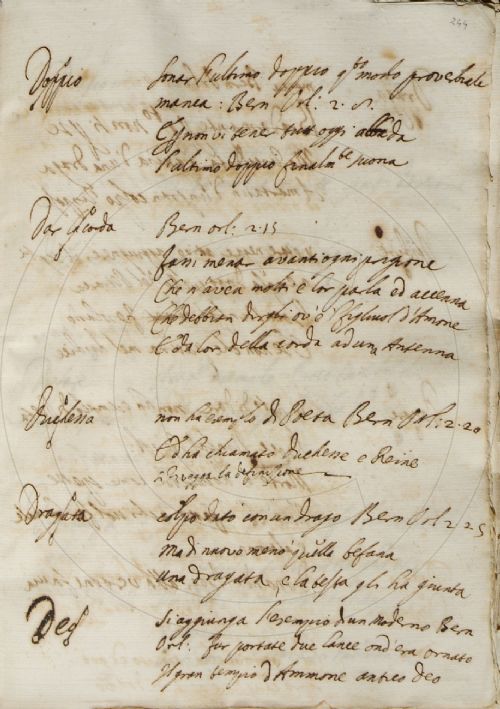 244
Doppio sonar l'ultimo doppio q.to modo proverbiale
manca: Bern Orl: 2. 
Ch non vi se ne oggi
l'ultimo doppio finalm.te suona
Dar la corda Bern orl: 2. 15
Fassi menar avanti ogni prigione
Che n'avea molti e lor parla ed accenna
Che debban dirgli ov'è 'l figliuol d'Amone
E dà lor della corda ad una Antenna
Duchessa non ha esempio di Poeta Bern Orl: 2. 20
Ed ha chiamato duchesse e Reine
la definizione
Dragata colpo dato con un drago Bern Orl 2. 25
Ma di nuovo menò quella befana
una dragata, e la besta gli ha giunta
Deo si aggiunga l'esempio d'un Moderno Bern
Orl: fur portate due lance ond'era ornato
Il gran tempio d'Ammone antico deo